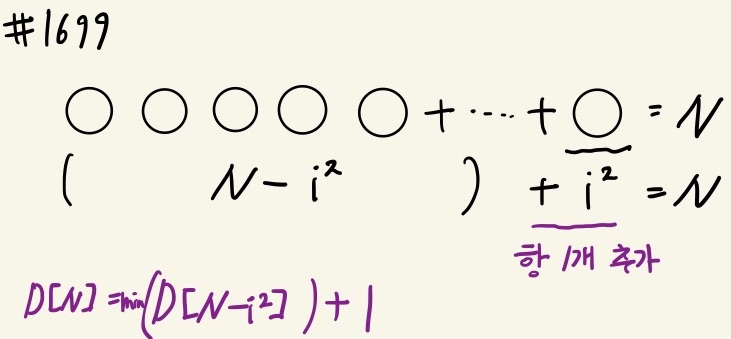 #1699
○ ○ ○ ○ ○ + ····· + ○ = N
( N - i² ) + i² = N
항 1개 추가
D[N] = min(D[N-i²]) + 1